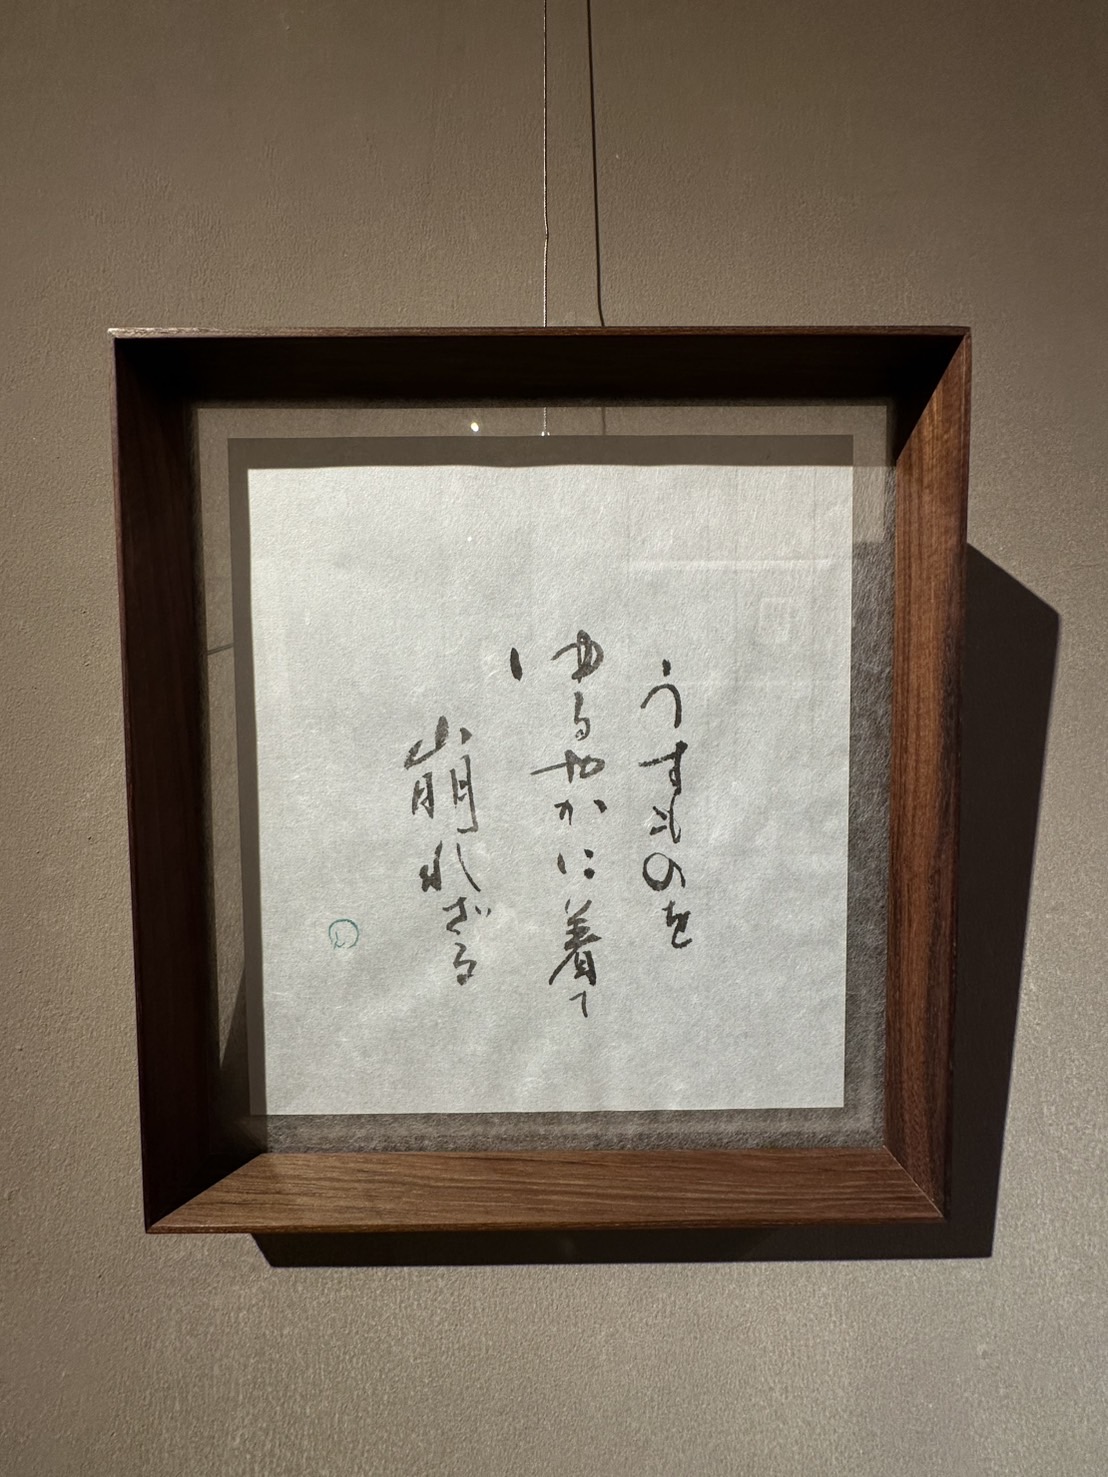 うすものを
ゆるやかに着て
崩れざる